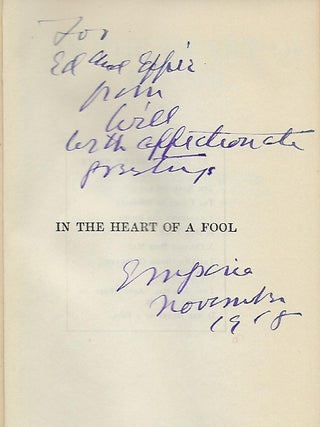 For
Ed and Effie
from
Will
With affectionate
greetings
IN THE HEART OF A FOOL
Emporia
November
1918